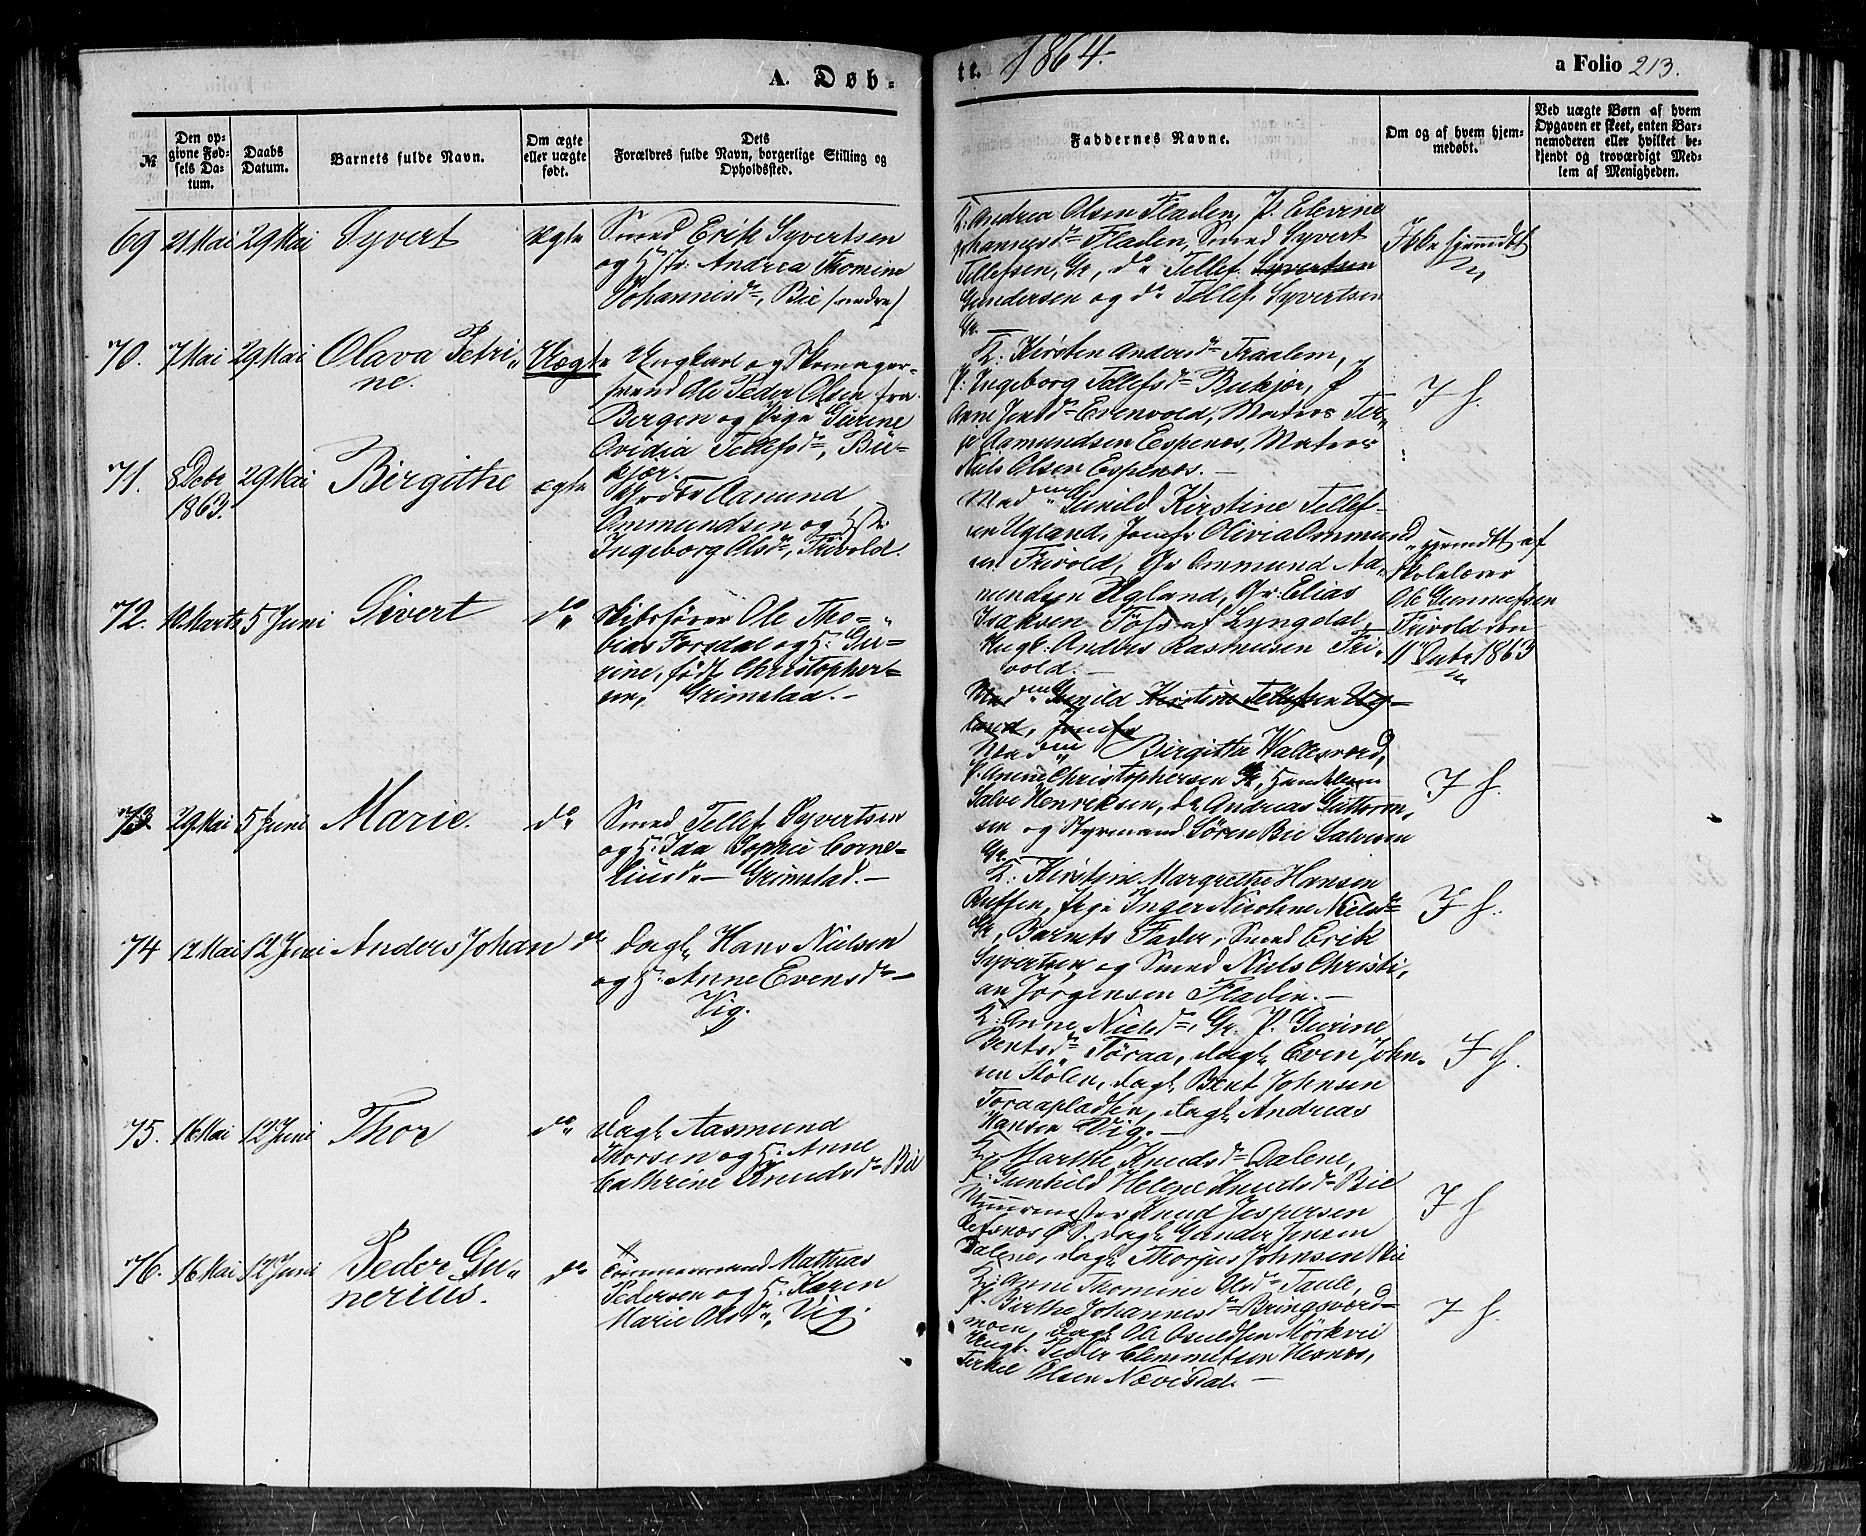 A. Døb=
te. 1864.
a Folio 213.
№
Den op=
givne Fød=
sels Da=
tum.
Daabs
Datum.
Barnets fulde Navn.
Om ægte
eller uægte
født.
Dets
Forældres fulde Navn, borgerlige Stilling og
Opholdssted.
Faddernes Navne.
Om og af hvem hjem=
medøbt.
Ved uægte Børn af hvem
Opgaven er skeet, enten Bar=
nemoderen eller hvilket be=
kjendt og troværdigt Med=
lem af Menigheden.
69 21 Mai 29 Mai Syvert ægte
Smed Erik Syvertsen
og Hstr. Andrea Thomine
Johannisdr, Bie (nedre)
K. Andrea Olsen Fladen, P. Elevine
Johannesdr Fladen, Smed Syvert
Tellefsen, Gr, do Tellef Syvertsen
Gundersen og do Tellef Syvertsen
Gr.
Ikke hjemdt
70. 7 Mai 29 Mai Olava Petri=
ne.
Uægte
Ungkarl og Skomager-
svend Ole Peder Olsen fra
Bergen og Pige Gurine
Ovidia Tellefsdr, Bu-
kjær.
K. Kirsten Andersdr Fraalem,
P. Ingeborg Tellefsdr Bukjær, P
Anne Jensdr Evenvold, Matros Ter-
je Aamundsen Espenæs, Matros
Niels Olsen Espenæs.
I h.
71. 8 Debr 29 Mai Birgithe ægte
1863.
Skoder Aamund
Ommundsen og Hstr.
Ingeborg Olsdr, Frivold.
Madme Gunild Kirstine Tellef-
sen Ugland, Jomfr Olivia Ommund
sen Frivold, Gr Ommund Aa-
mundsen Ugland, Gr. Elias
Isaksen Foss af Lyngdal,
Ungk. Anders Rasmusen Fri-
vold.
hjemdt af
Skolelærer
Ole Gunnufsen
Frivold den
11 Debr 1863
72. 10 Marts 5 Juni Sivert do
Skibsfører Ole Tho-
bias Forsdal og H. Gu-
rine, født Christopher-
sen, Grimstad.
Madme Gunild Kirstine Tellefsen Ug-
land, Jomfr
Madme Birgitte Wallesværd,
P. Anine Christophersen Gr, Handelsm
Salve Henriksen, do Andreas Guttorm-
sen og Styrmand Søren Bie Salvesen
Gr.
I h.
73. 29 Mai 5 Juni Marie. do
Smed Tellef Syvertsen
og H. Ida Sophie Corne-
liusdr Grimstad.
K. Kirstine Margrethe Hansen
Buffen, Pige Inger Nicoline Nielsdr
Gr, Barnets Fader, Smed Erik
Syvertsen og Smed Niels Christi-
an Jørgensen Fladen.
I h.
74 12 Mai 12 Juni Anders Johan do
Dagl. Hans Nielsen
og H. Anne Evensdr
Vig.
K. Anne Nielsdr, Gr. P. Gurine
Bentsdr Toraa, Dagl. Even John-
sen Stølen, Dagl. Bent Johnsen
Toraapladsen, Dagl. Andreas
Hansen Vig.
I h.
75. 16 Mai 12 Juni Thor do
Dagl. Aasmund
Thorsen og H. Anne
Cathrine Knudsdr Bie
K. Marthe Knudsdr Dalene,
P. Gunhild Helene Knudsdr Bie
Muurmester Knud Jespersen
Refsnæs, Dagl. Gunder Jensen
Dalene, Dagl. Thorjus Johnsen Bie
I h
76. 16 Mai 12 Juni Peder Gu-
nerius.
do
Tømmermand Mathias
Pedersen og H. Karen
Marie Olsdr, Vig.
K. Anne Thomine Olsdr Taule,
P. Birthe Johannesdr Bringsværd-
moen, Dagl. Ole Osuldsen Mørkvei
Ungk. Peder Clemmetsen Hesnæs,
Terkel Olsen Nævisdal.
I h.